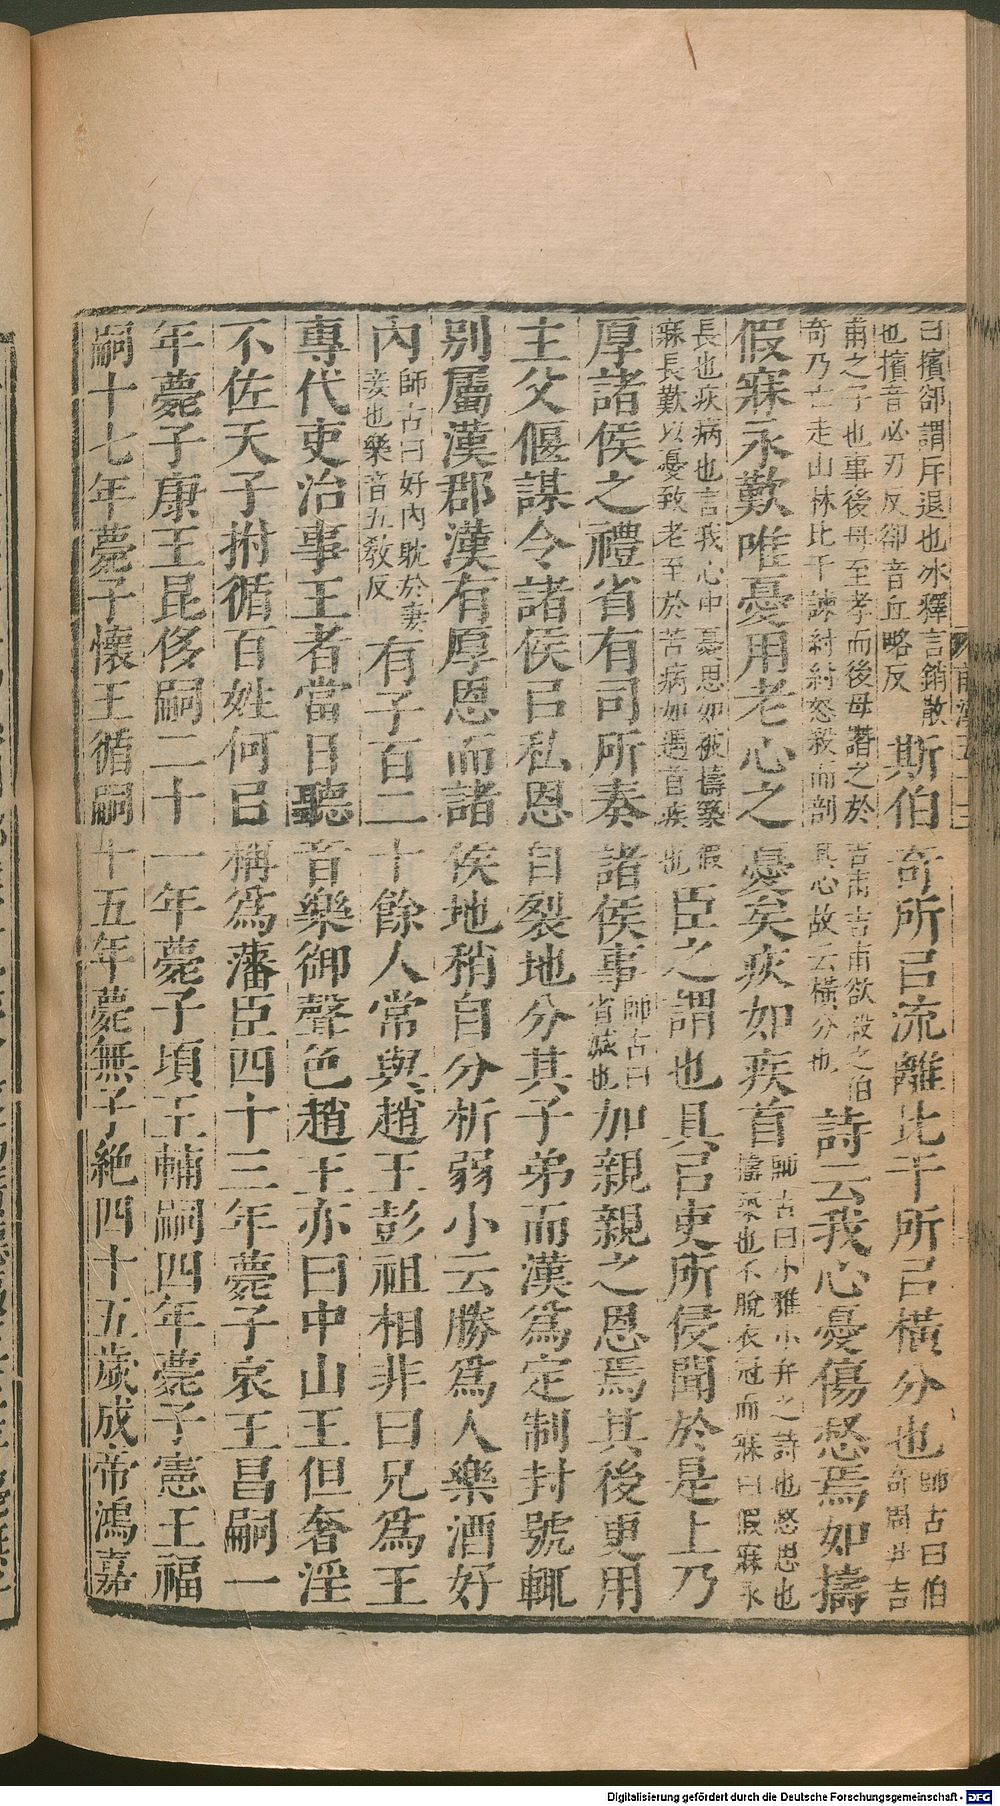 前漢五十三
曰擯卻謂斥退也冰釋言銷散
也擯音必刃反卻音丘略反
斯伯奇所㠯流離比干所㠯橫分也
師古曰伯
奇周尹吉
甫之子也事後母至孝而後母譖之於吉甫吉甫欲殺之伯
奇乃亡走山林比干諫紂紂怒殺而剖其心故云橫分也
詩云我心憂傷惄焉如擣
假寐永歎唯憂用老心之憂矣疢如疾首
師古曰小雅小弁之詩也惄思也
擣築也不脫衣冠而寐曰假寐永
長也疢病也言我心中憂思如被擣築假
寐長歎以憂致老至於苦病如遇首疾也
臣之謂也具㠯吏所侵聞於是上乃
厚諸侯之禮省有司所奏諸侯事
師古曰
省減也
加親親之恩焉其後更用
主父偃謀令諸侯㠯私恩自裂地分其子弟而漢爲定制封號輒
别屬漢郡漢有厚恩而諸侯地稍自分析弱小云勝爲人樂酒好
內
師古曰好內耽於妻
妾也樂音五敎反
有子百二十餘人常與趙王彭祖相非曰兄爲王
專代吏治事王者當日聽音樂御聲色趙王亦曰中山王但奢淫
不佐天子拊循百姓何㠯稱爲藩臣四十三年薨子哀王昌嗣一
年薨子康王昆侈嗣二十一年薨子頃王輔嗣四年薨子憲王福
嗣十七年薨子懷王循嗣十五年薨無子絶四十五歲成帝鴻嘉
Digitalisierung gefördert durch die Deutsche Forschungsgemeinschaft - DFG